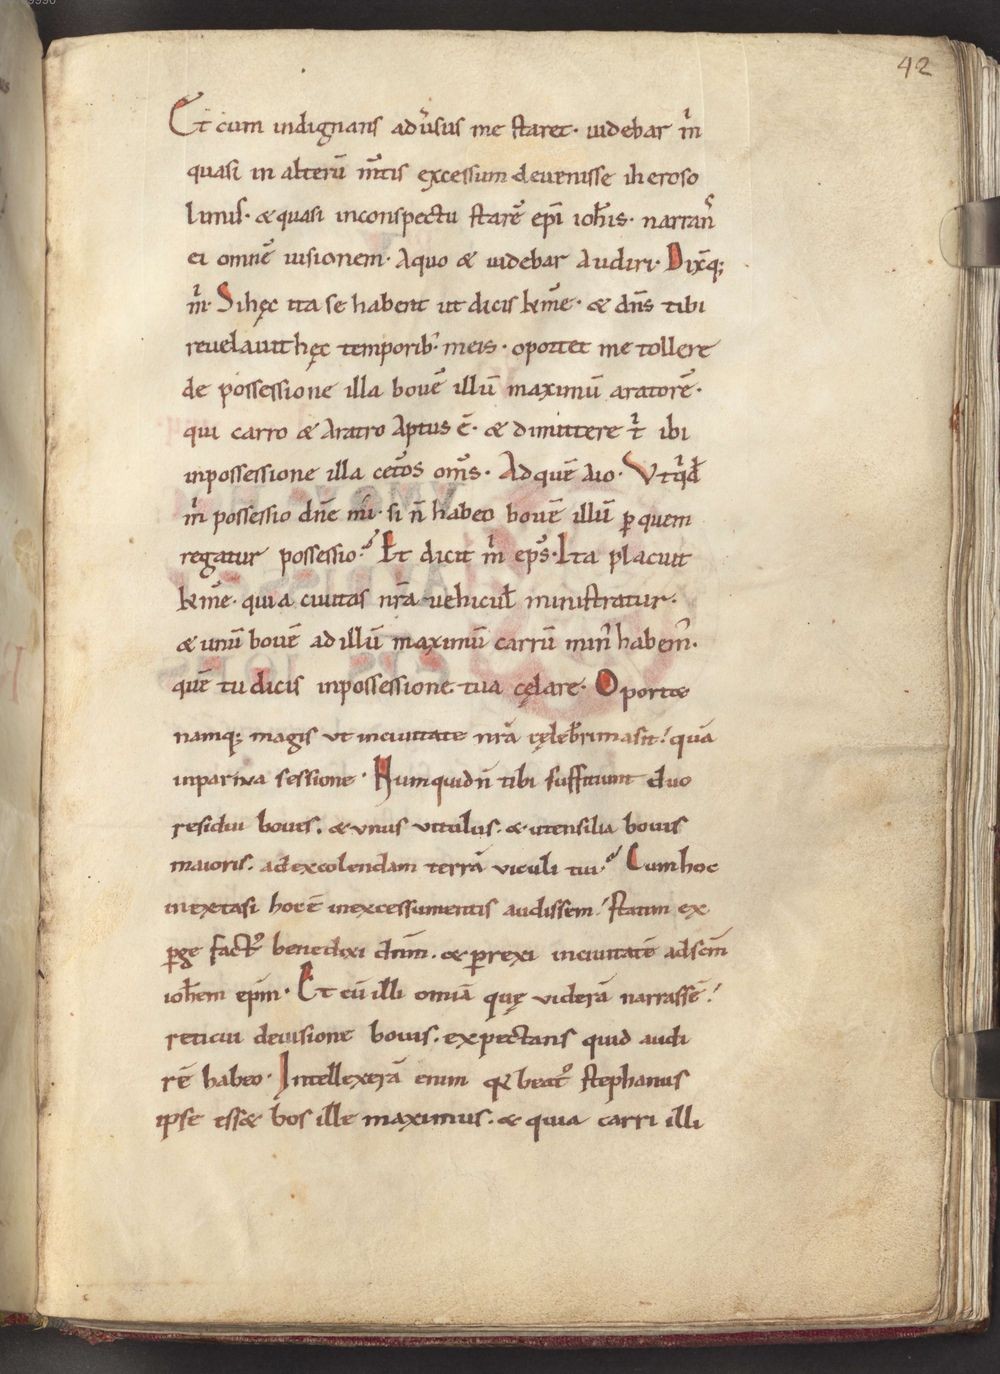 42
Et cum indignans adu̓sus me staret· uidebar m̓
quasi in alterū m̄tis excessum deuenisse iheroso
limis· &quasi inconspectu starē ep̄i ioh̄is· narrans̄
ei omnē uisionem· Aquo & uidebar audiri· Dix̄q;
m̓· Sihęc ita se habent ut dicis k̄me· & dn̄s tibi
reuelauit hęc temporib; meis· oportet me tollere
de possessione illa bouē illū maximū aratorē·
qui carro & Aratro Aptus ē· & dimittere t̓ ibi
inpossessione illa cet̄os om̄s· Adquē aio· Vtq̓d
m̓ possessio dn̄e mi· si n̄ habeo bouē illū ꝑquem
regatur possessio· Et dicit m̓ ep̄s· Ita placuit
k̄me· quia ciuitas nr̄a uehicul̄ ministratur·
& unū bouē ad illū maximū carrū min̓ habem̓·
quē tu dicis inpossessione tua cęlare· Oport&
namq; magis vt inciuitate nr̄a cęleb̓rima sit! quā
inparina sessione· Numquidn̄ tibi sufficiunt duo
residui boues. & vnus vitulus. & utensilia bouis
maioris. ad excolendam terrā viculi tui· Cumhoc
inextasi hoc ē inexcessumentis audissem! Statim ex
ꝑge fact᾽ benedixi dn̄m. & ꝑrexi inciuitatē adsc̄m
ioh̄em ep̄m· Et cū illi omīa quę viderā narrassē!
reticui deuisione bouis. expectans quid audi
rē habeo· Intellexerā enim qꝫ beat᾽ stephanus
ipse ess& bos ille maximus. & quia carri illi